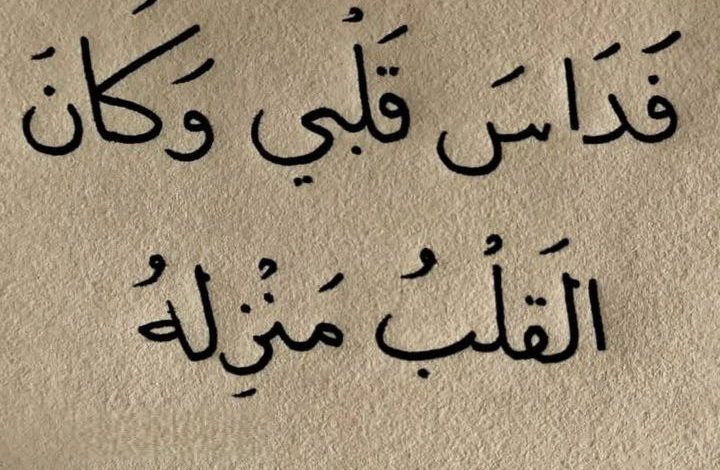 فَدَاسَ قَلْبي وَكَانَ
القَلْبُ مَنْزِلهُ